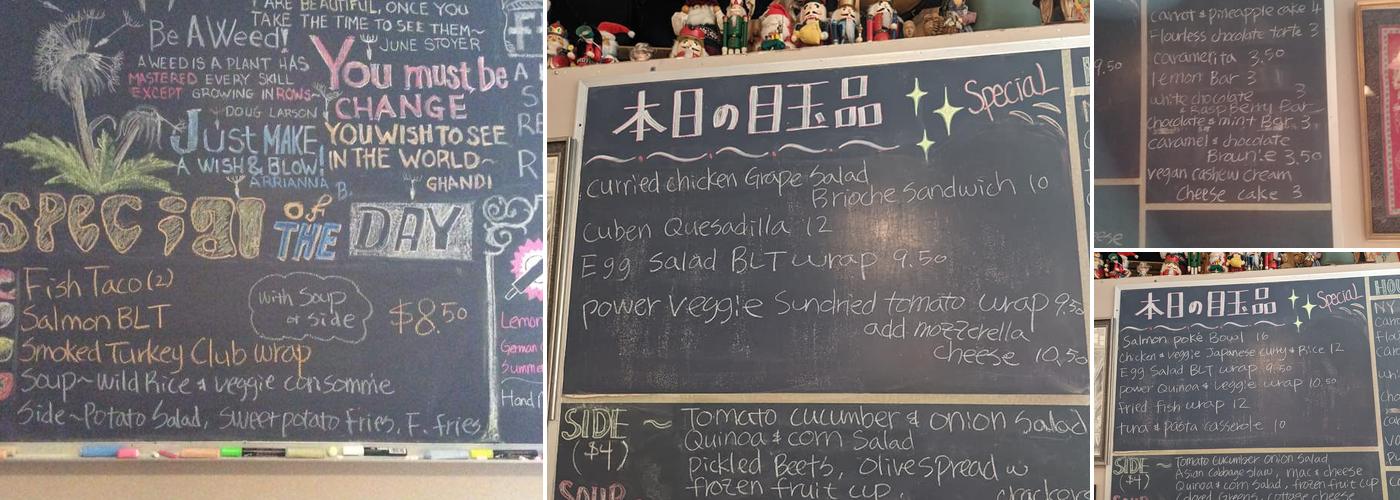 ARE BEAUTIFUL, ONCE YOU
TAKE THE TIME TO SEE THEM~
JUNE STOYER
Be A Weed!
A WEED IS A PLANT HAS
MASTERED EVERY SKILL
EXCEPT GROWING IN ROWS~
DOUG LARSON
You must be
CHANGE
YOU WISH TO SEE
IN THE WORLD~
GHANDI
Just MAKE
A WISH & BLOW!
ARRIANNA B.
SPECIAL OF THE DAY
Fish Taco (2)
Salmon BLT
Smoked Turkey Club wrap
with Soup
or side
$8.50
Soup~Wild Rice & veggie consomme
Side~Potato Salad, Sweet potato fries, F. fries
Lemon
German
Summe
本日の目玉品 Special
curried chicken Grape Salad
Brioche Sandwich 10
cuben Quesadilla 12
Egg Salad BLT wrap 9.50
power veggie Sundried tomato wrap 9.50
add mozzerella
cheese 10.50
SIDE ~ Tomato cucumber & onion Salad
($4) Quinoa & corn Salad
pickled Beets, olive spread w
frozen fruit cup. crackers
SOUP
carrot & pineapple cake 4
Flourless chocolate torte 3
caramelita 3.50
9.50
lemon Bar 3
white chocolate
& Raspberry Bar 3
chocolate & mint Bar 3
caramel & chocolate
Brownie 3.50
vegan cashew cream
cheese cake 3
本日の目玉品 Special
Salmon poké Bowl 16
chicken & veggie Japanese curry & Rice 12
Egg Salad BLT wrap 9.50
power Quinoa & veggie wrap 10.50
fried fish wrap 12
tuna & pasta casserole 10
SIDE ~ Tomato cucumber onion Salad
($4) Asian cabbage slaw, mac & cheese
Quinoa & corn Salad, frozen fruit cup